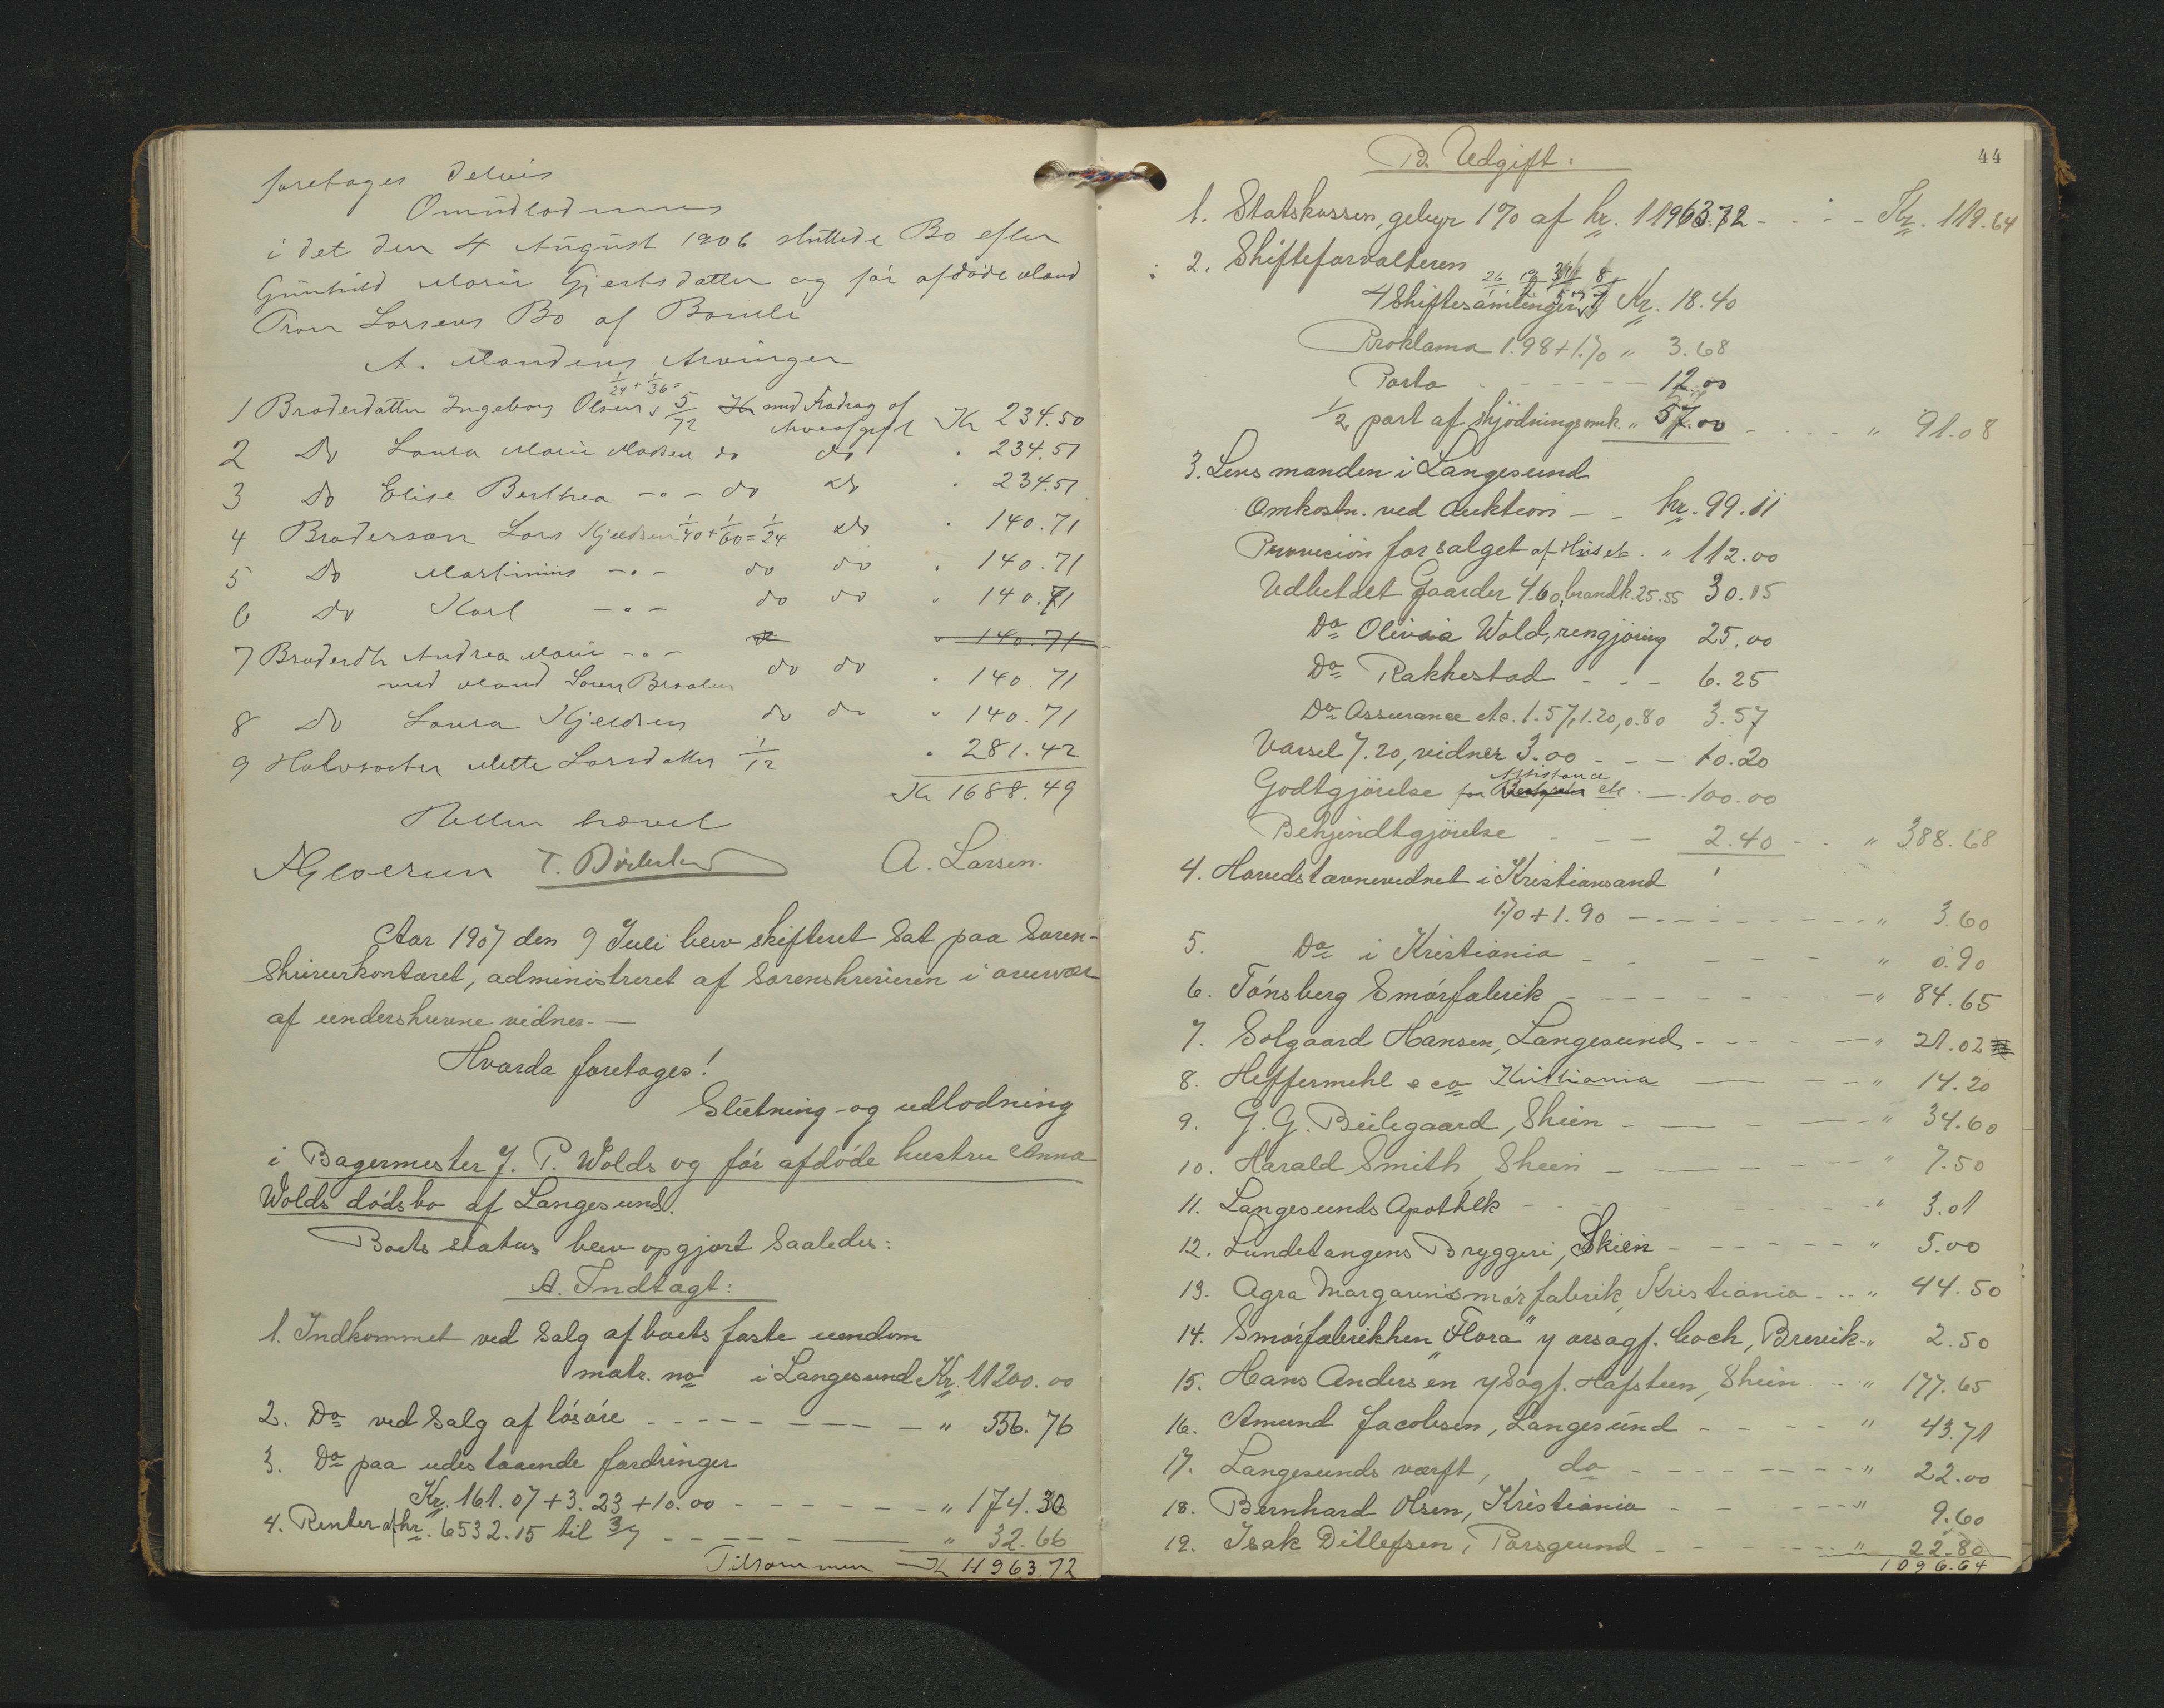 foretages delvis
Omudlodning
i det den 4 August 1906 sluttede Bo efter
Gunhild Marie Gjertsdatter og før afdøde Mand
Tron Larsens Bo af Bamle
A. Mandens Arvinger
1/24 + 1/36 =
1 Broderdatter Ingeborg Olsen 5/72 med Fradrag af Arveafgift Kr 234.50
2 Do Laura Marie Madsen do do " 234.51
3 Do Elise Berthea -"- do do " 234.51
4 Broderson Lars Kjeldsen 1/40 + 1/60 = 1/24 do " 140.71
5 Do Martinius -"- do do " 140.71
6 Do Karl -"- do do " 140.71
7 Broderdtr Andrea Marie -"- do " 140.71
med Mand Søren Braaten do do " 140.71
8 Do Laura Kjeldsen do do " 140.71
9 Halvsøster Mette Larsdatter 1/12 " 281.42
Kr 1688.49
Retten hævet
A. Larsen
Aar 1907 den 9 Juli blev skifteret sat paa Soren-
skriverkontoret, administreret af sorenskriveren i overvær
af underskrevne vidner. —
Hvorda foretoges!
Slutning- og udlodning
i Bagermester J. P. Wolds og før afdøde hustru Anna
Wolds dødsbo af Langesund.
Boets status blev opgjort saaledes:
A. Indtægt:
1. Indkommet ved salg af boets faste eiendom
matr. no i Langesund Kr. 11200.00
2. Do ved salg af løsøre - - - - " 556.76
3. Do paa udestaaende fordringer
Kr. 161.07 + 3.23 + 10.00 - - - - " 174.30
4. Renter af kr. 6532.15 til 3/7 - - - - " 32.66
Tilsammen Kr 11963.72
44
B. Udgift.
1. Statskassen, gebyr 1% af kr. 11963.72 - - - Kr. 119.64
2. Skifteforvalteren
4 Skiftesamlinger Kr. 18.40
Proklama 1.98 + 1.70 " 3.68
Porto - - - - - 12.00
1/2 part af skjødningsomk. " 57.00 - - - - " 91.08
3. Lensmanden i Langesund
Omkostn. ved auktion - - kr. 99.11
Provision for salget af Huset. " 112.00
Udbetalt Gaarder 4.60, brandk. 25.55 30.15
Do Olivia Wold, rengjøring 25.00
Do Rakkestad - - - 6.25
Do Assurance etc. 1.57, 1.20, 0.80 3.57
Varsel 7.20, vidner 3.00 - - - 10.20
Assistance
Godtgjørelse for etc. - 100.00
Bekjendtgjørelse - - - 2.40 - - " 388.68
4. Hovedstævnevidnet i Kristiansand
1.70 + 1.90 - - - - - - " 3.60
5. Do i Kristiania - - - - - " 0.90
6. Tønsberg Smørfabrik - - - - - - " 84.65
7. Solgaard Hansen, Langesund - - - - " 21.02
8. Heffermehl & co Kristiania - - - " 14.20
9. G. G. Beilegaard, Skien - - - - " 34.60
10. Harald Smith, Skien - - - - " 7.50
11. Langesunds Apothek - - - - - - " 3.01
12. Lundetangens Bryggeri, Skien - - - - - " 5.00
13. Agra Margarinsmørfabrik, Kristiania - - " 44.50
14. Smørfabrikken "Flora" v/ orsagf. Coch, Brevik - " 2.50
15. Hans Andersen v/ sagf. Hafsteen, Skien - - " 177.65
16. Amund Jacobsen, Langesund - - - - " 43.71
17. Langesunds værft, do - - - - - " 22.00
18. Bernhard Olsen, Kristiania - - - - " 9.60
19. Isak Ditlefsen, Porsgrund - - - - " 22.80
1096.64